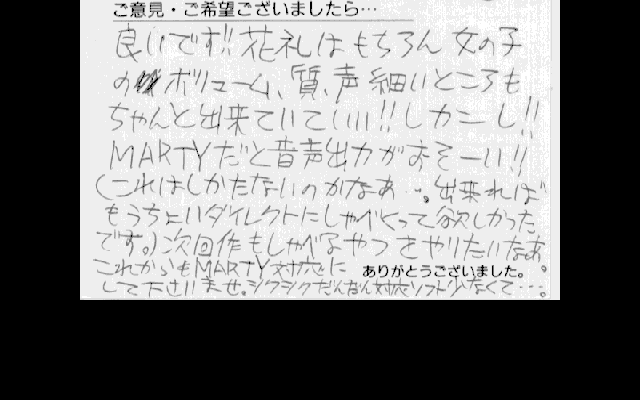 ご意見・ご希望ございましたら…
良いです!!花札はもちろん女の子
のボリューム、質、声細いところも
ちゃんと出来ていていい!!しかーし!!
MARTYだと音声出力がおそーい!!
(これはしかたないのかなあ…。出来れば
もうちょいダイレクトにしゃべくって欲しかった
です。)次回作もしゃべるやつをやりたいなあ。
これからもMARTY対応に
ありがとうございました。
して下さいませ。シクシクだんだん対応ソフト少なくて…。